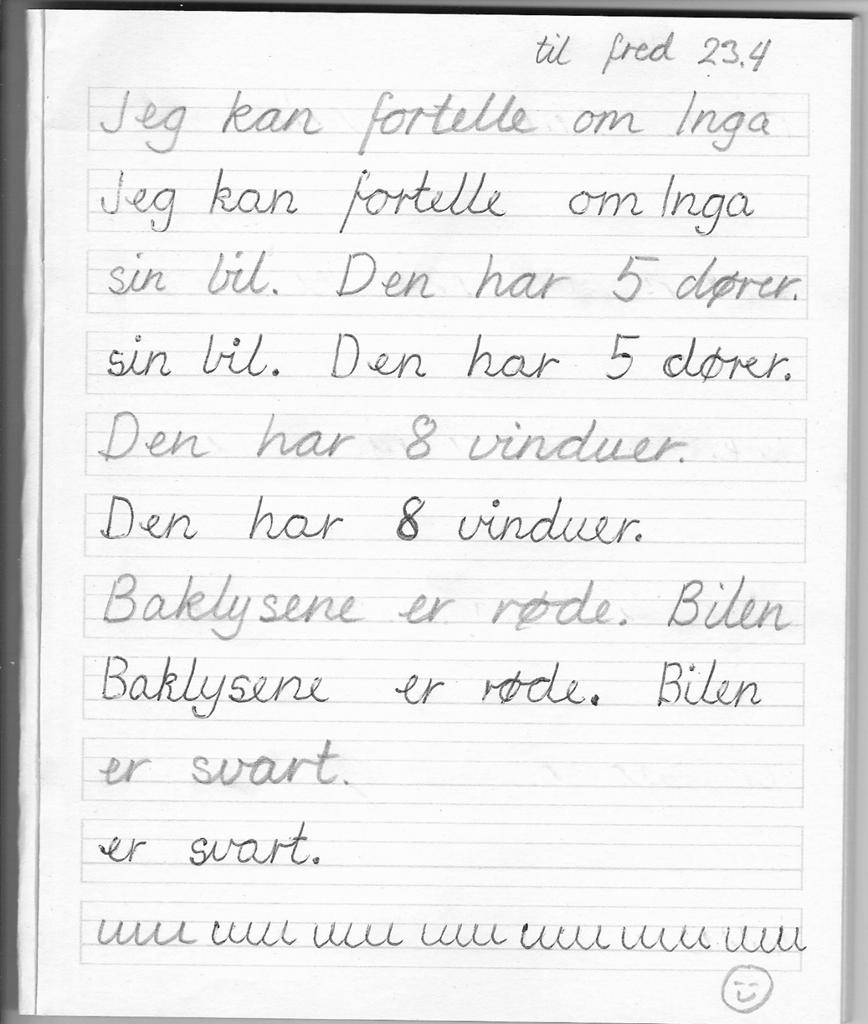 til fred 23.4
Jeg kan fortelle om Inga
Jeg kan fortelle om Inga
sin bil. Den har 5 dører.
sin bil. Den har 5 dører.
Den har 8 vinduer.
Den har 8 vinduer.
Baklysene er røde. Bilen
Baklysene er røde. Bilen
er svart.
er svart.
uuu uuu uuu uuu uuu uuu uuu